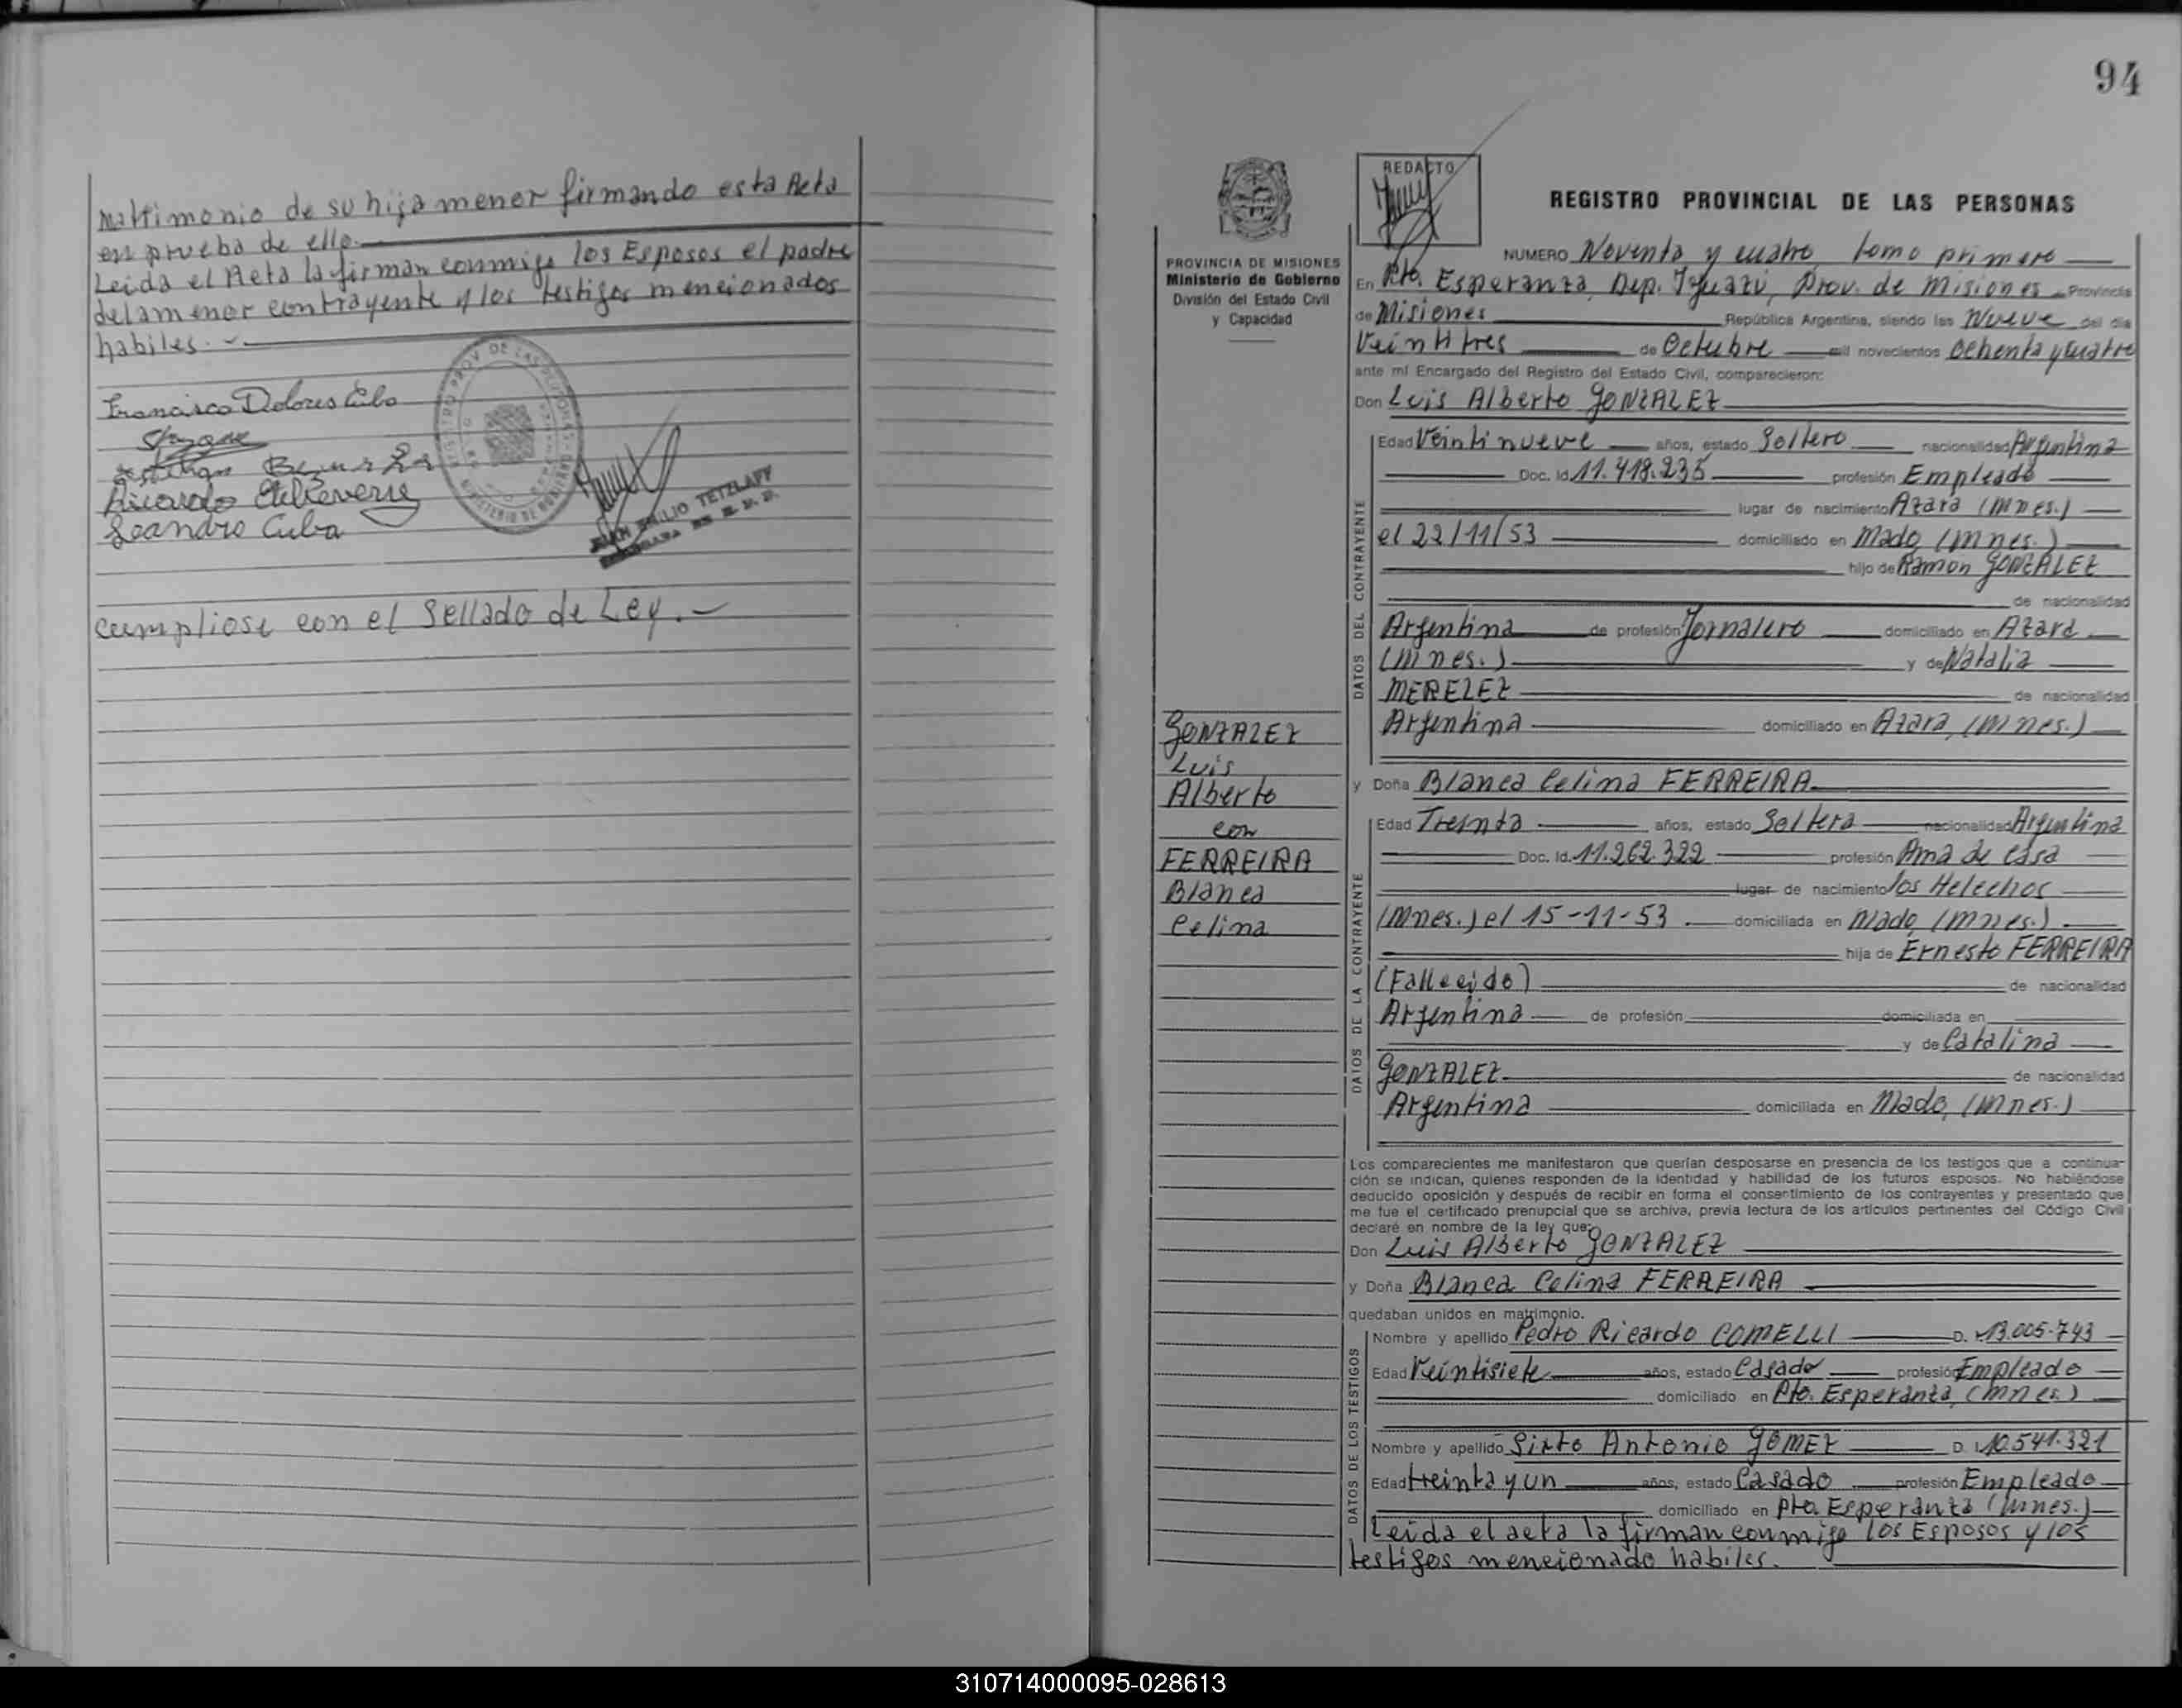 matrimonio de su hija menor firmando esta Acta
en prueba de ello.
Leida el Acta la firman conmigo los Esposos el padre
de la menor contrayente y los testigos mencionados
habiles.
Francisco Dolores Cubo
Ricardo Etcheverre
Leandro Cuba
JUAN EMILIO TETZLAFF
cumpliose con el Sellado de Ley.
94
REDACTO
REGISTRO PROVINCIAL DE LAS PERSONAS
PROVINCIA DE MISIONES
Ministerio de Gobierno
División del Estado Civil
y Capacidad
NUMERO Noventa y cuatro tomo primero
En Pto. Esperanza, Dep. Iguazú, Prov. de Misiones Provincia
de Misiones República Argentina, siendo las Nueve del día
Veintitres de Octubre mil novecientos Ochenta y cuatro
ante mí Encargado del Registro del Estado Civil, comparecieron:
Don Luis Alberto GONZALEZ
DATOS DEL CONTRAYENTE
Edad Veintinueve años, estado Soltero nacionalidad Argentina
Doc. Id. 11.418.235 profesión Empleado
lugar de nacimiento Azara (Mnes.)
el 22/11/53 domiciliado en Mado, (Mnes.)
hijo de Ramon GONZALEZ
de nacionalidad
Argentina de profesión Jornalero domiciliado en Azara
(Mnes.) y de Natalia
MERELEZ de nacionalidad
Argentina domiciliado en Azara, (Mnes.)
GONZALEZ
Luis
Alberto
con
FERREIRA
Blanca
Celina
y Doña Blanca Celina FERREIRA
DATOS DE LA CONTRAYENTE
Edad Treinta años, estado Soltera nacionalidad Argentina
Doc. Id. 11.262.322 profesión Ama de casa
lugar de nacimiento los Helechos
(Mnes.) el 15-11-53 domiciliada en Mado, (Mnes.)
hija de Ernesto FERREIRA
(Fallecido) de nacionalidad
Argentina de profesión domiciliada en
y de Catalina
GONZALEZ de nacionalidad
Argentina domiciliada en Mado, (Mnes.)
Los comparecientes me manifestaron que querían desposarse en presencia de los testigos que a continua-
ción se indican, quienes responden de la identidad y habilidad de los futuros esposos. No habiéndose
deducido oposición y después de recibir en forma el consentimiento de los contrayentes y presentado que
me fue el certificado prenupcial que se archiva, previa lectura de los artículos pertinentes del Código Civil
declaré en nombre de la ley que:
Don Luis Alberto GONZALEZ
y Doña Blanca Celina FERREIRA
quedaban unidos en matrimonio.
DATOS DE LOS TESTIGOS
Nombre y apellido Pedro Ricardo COMELLI D. I. 13.005.743
Edad Veintisiete años, estado Casado profesión Empleado
domiciliado en Pto. Esperanza, (Mnes.)
Nombre y apellido Sixto Antonio GOMEZ D. I. 10.541.321
Edad treinta y un años, estado Casado profesión Empleado
domiciliado en Pto. Esperanza (Mnes.)
Leida el acta la firman conmigo los Esposos y los
testigos mencionado habiles.
310714000095-028613